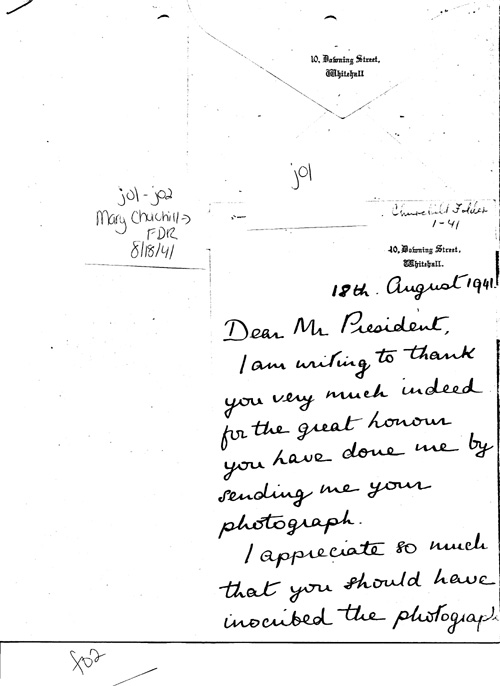 10, Downing Street,
Whitehall
j01
j01-j02
Mary Chuchill→
FDR
8/18/41
Churchill Folder
1-41
10, Downing Street,
Whitehall.
18th. August 1941.
Dear Mr President,
I am writing to thank
you very much indeed
for the great honour
you have done me by
sending me your
photograph.
I appreciate so much
that you should have
inscribed the photograph
f02